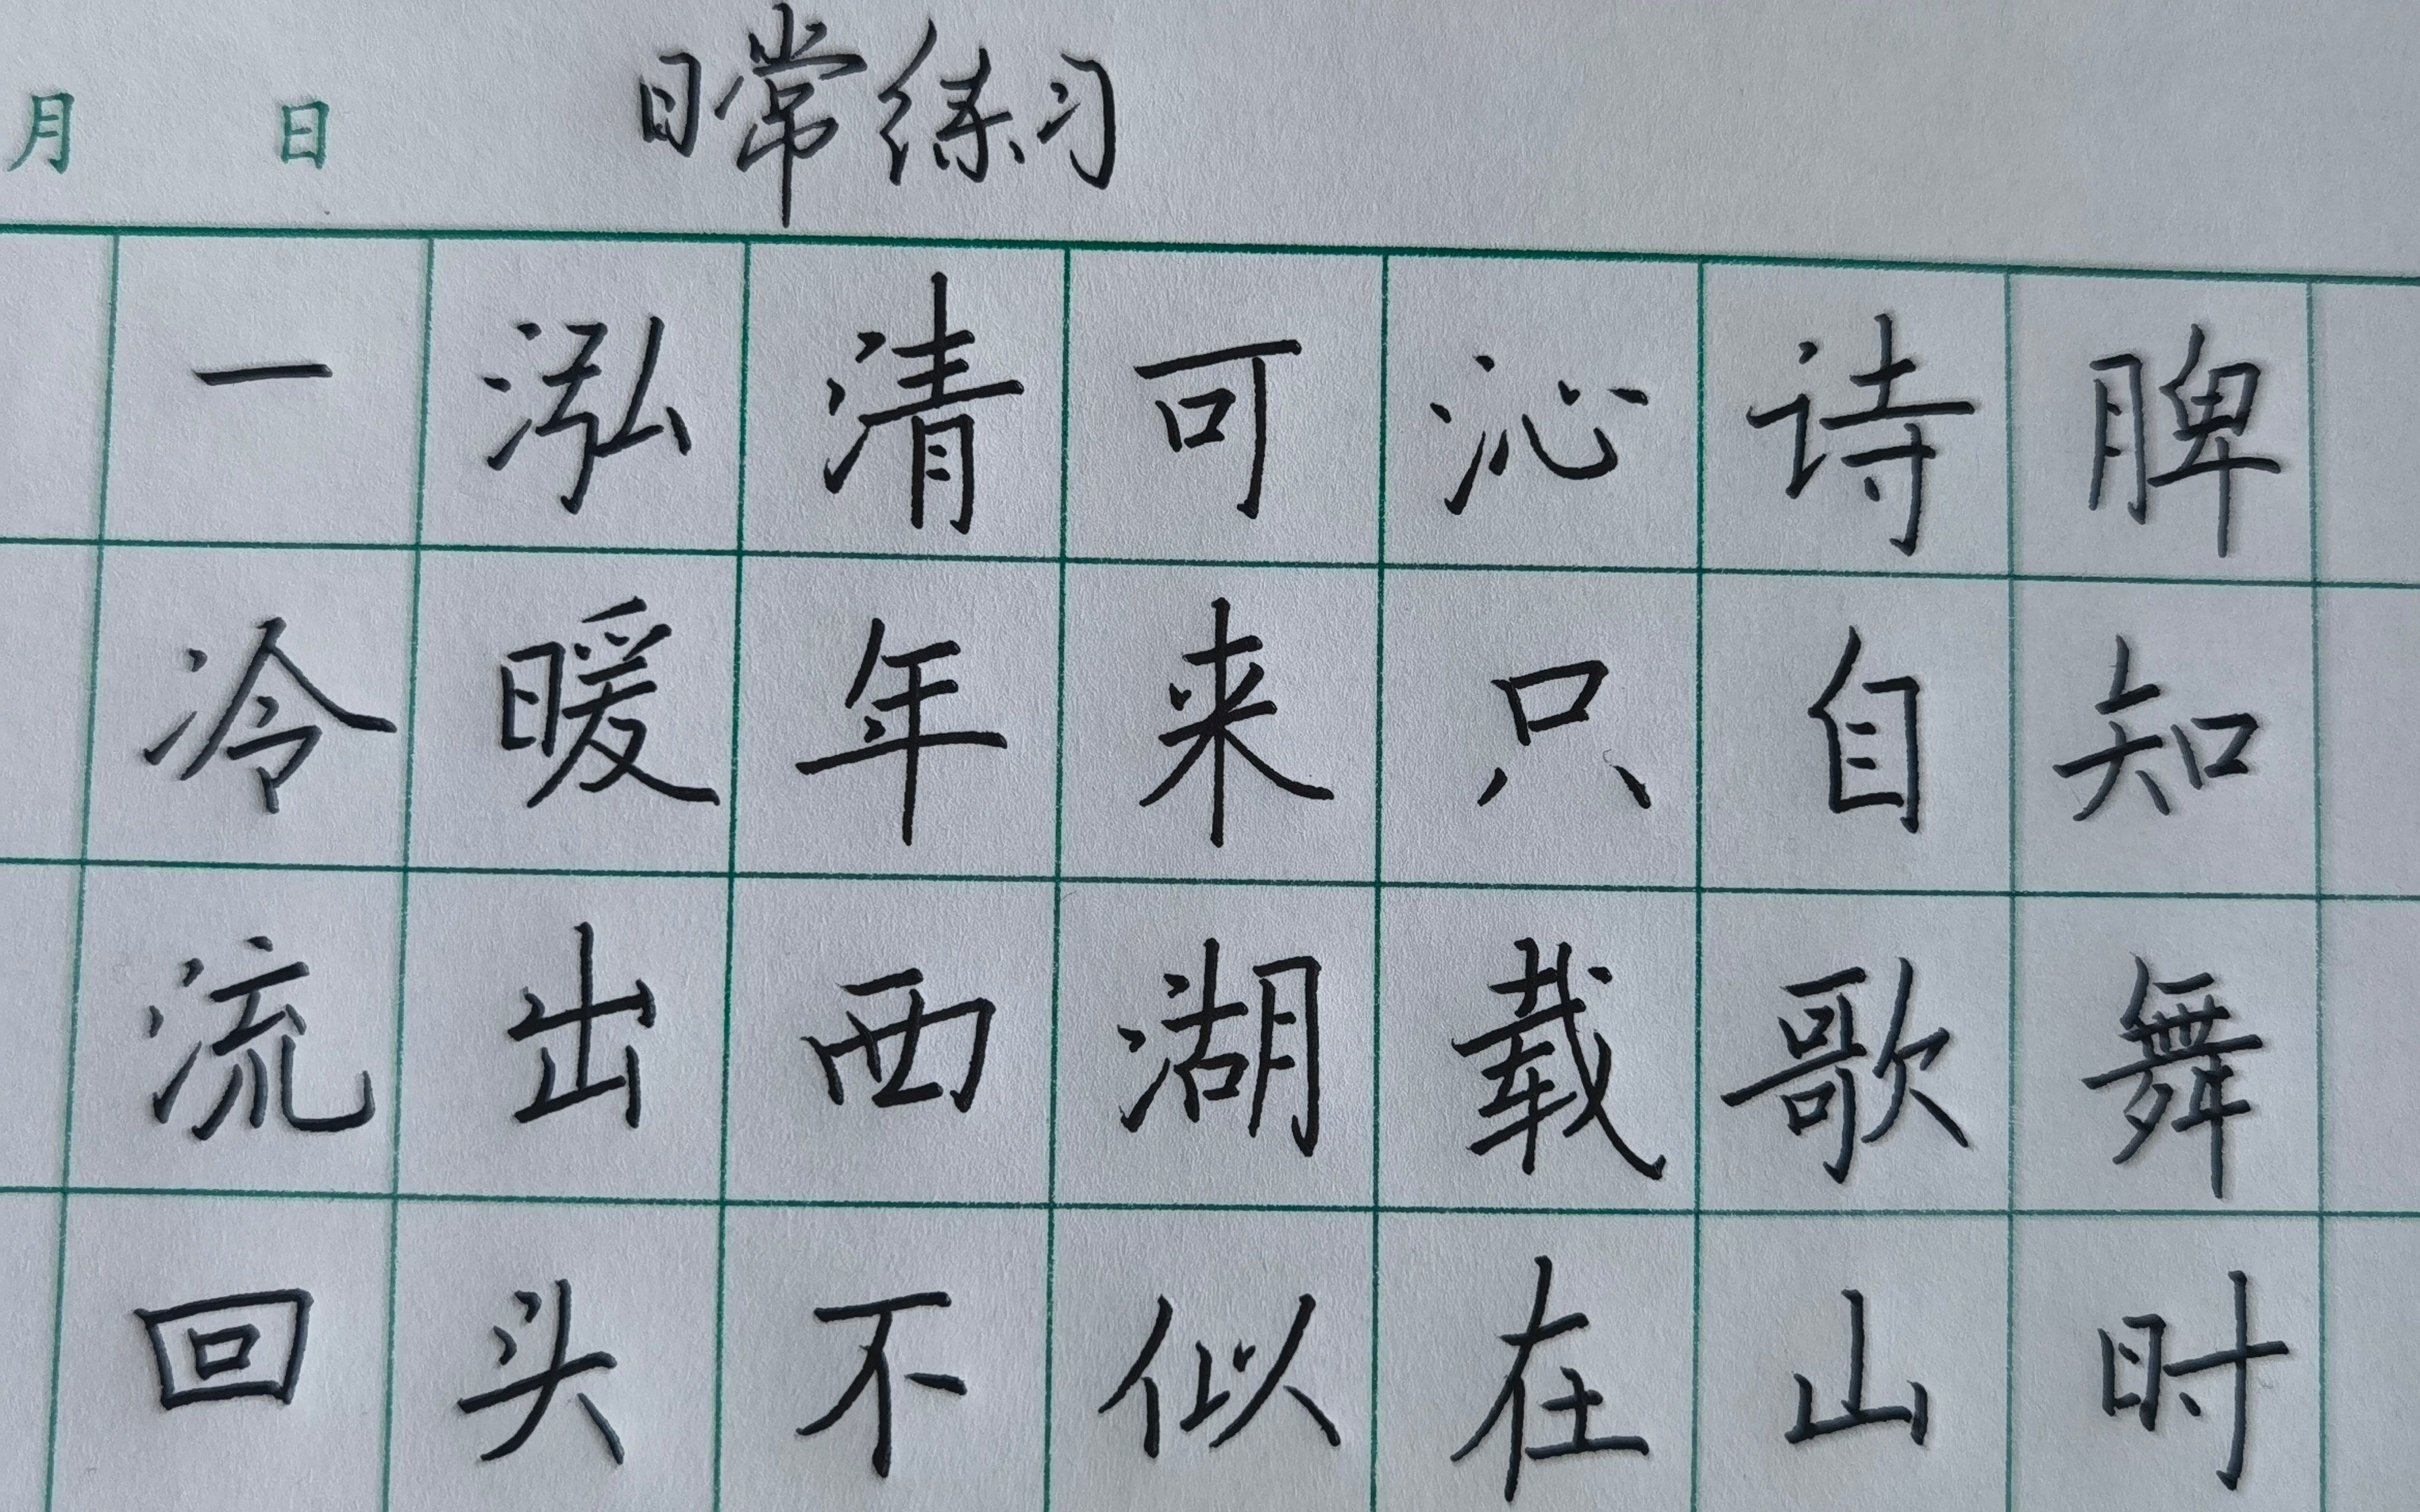 月 日 日常练习
一泓清可沁诗脾
冷暖年来只自知
流出西湖载歌舞
回头不似在山时